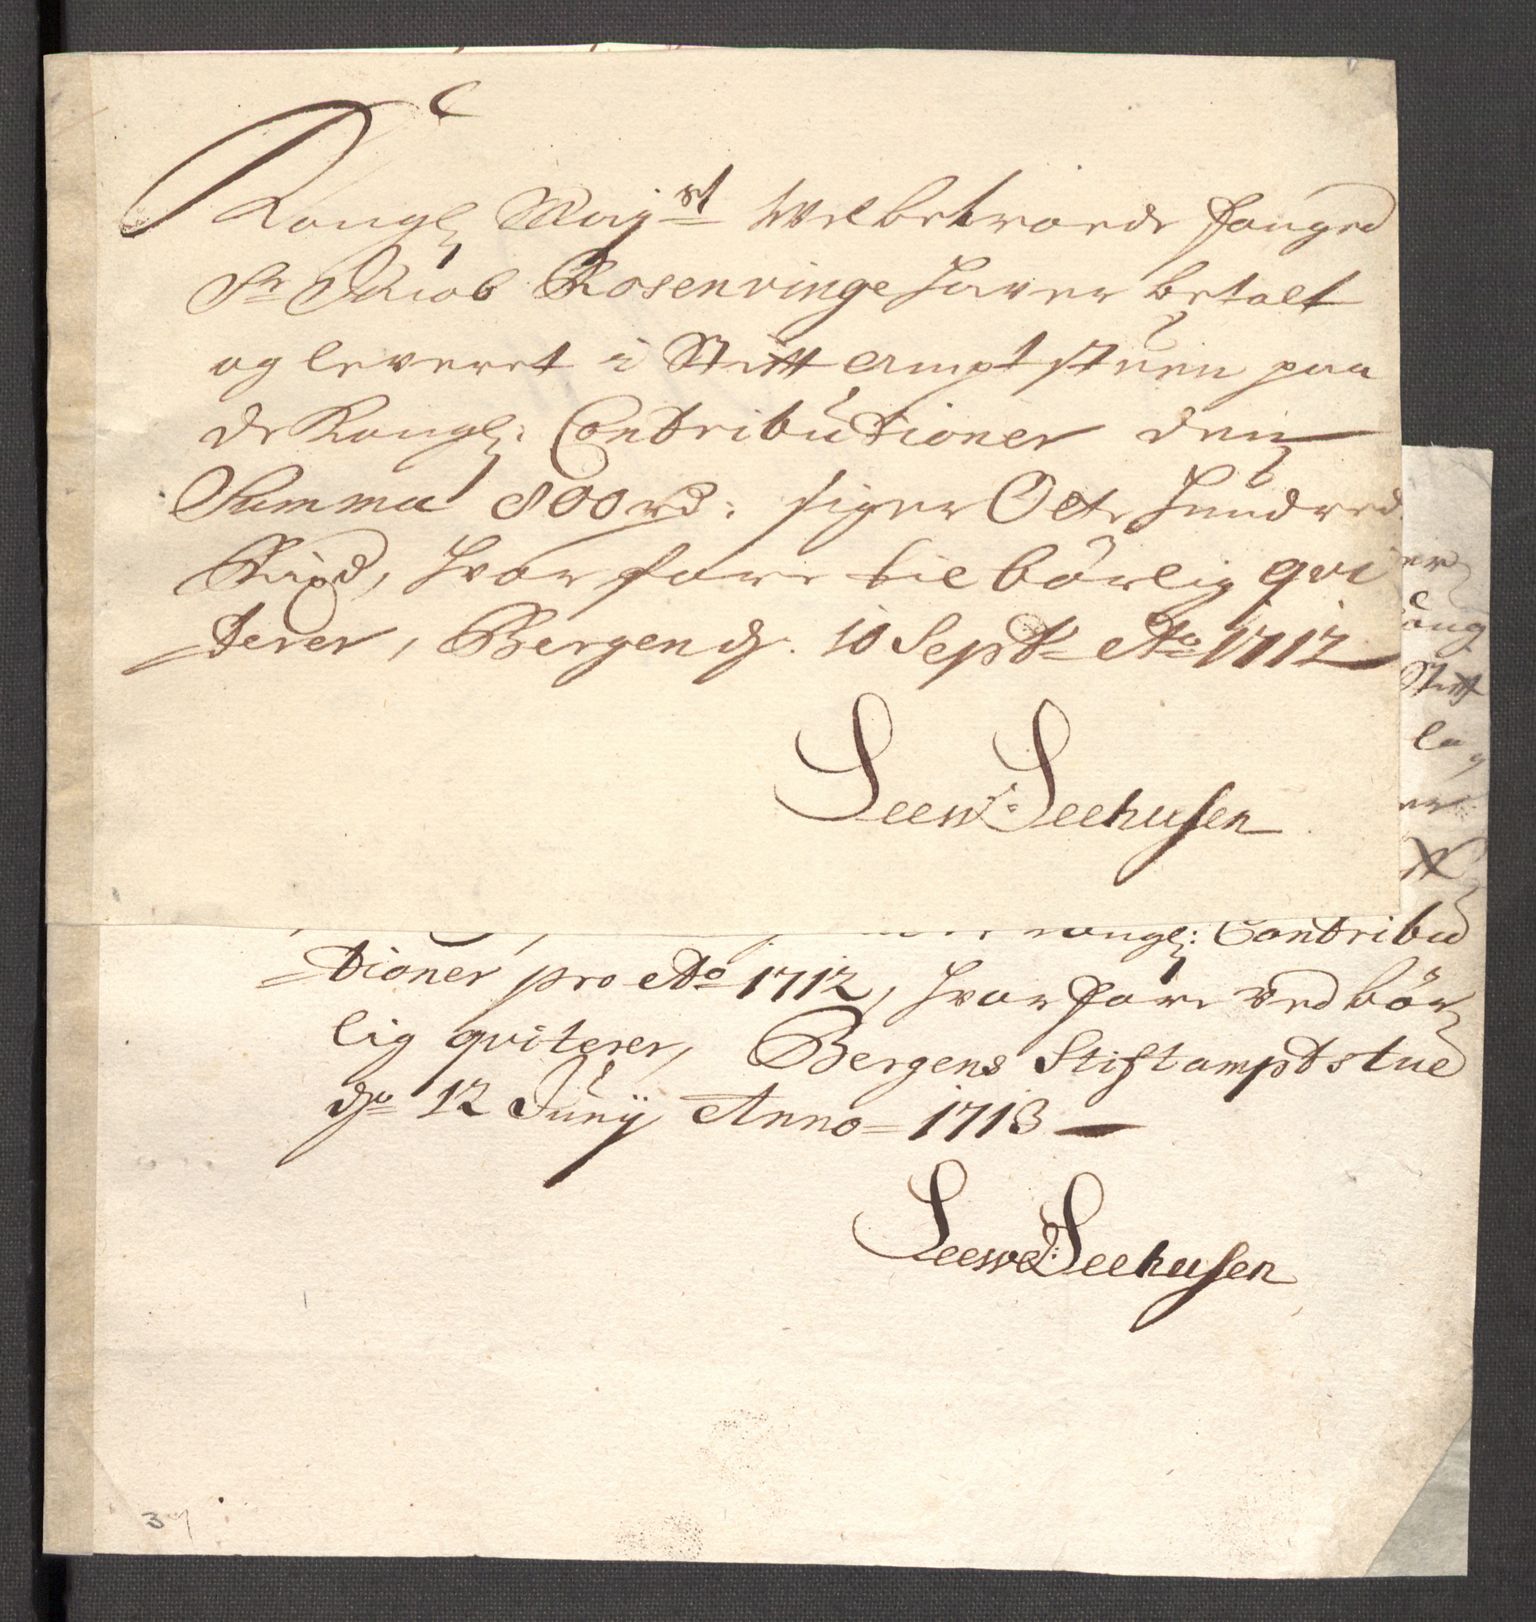 Kongl: Mayst Welbetroede fouged
Sr Jacob Rosenvinge haver betalt
og leveret i Stitt ampt stuen paa
de Kongl: Contributioner den
Summa 800 rd: siger Otte hundred
Rixd, hvor fore tilbörlig qvi
terer, Bergen d. 10 Septr Ao 1712
Seew: Seehusen
Kongl: Contribu
tioner pro Ao 1712, hvor fore ved bör
lig qviterer, Bergens Stiftamptstue
do 12 Junij Anno 1713
Seew: Seehusen
Stitt
37